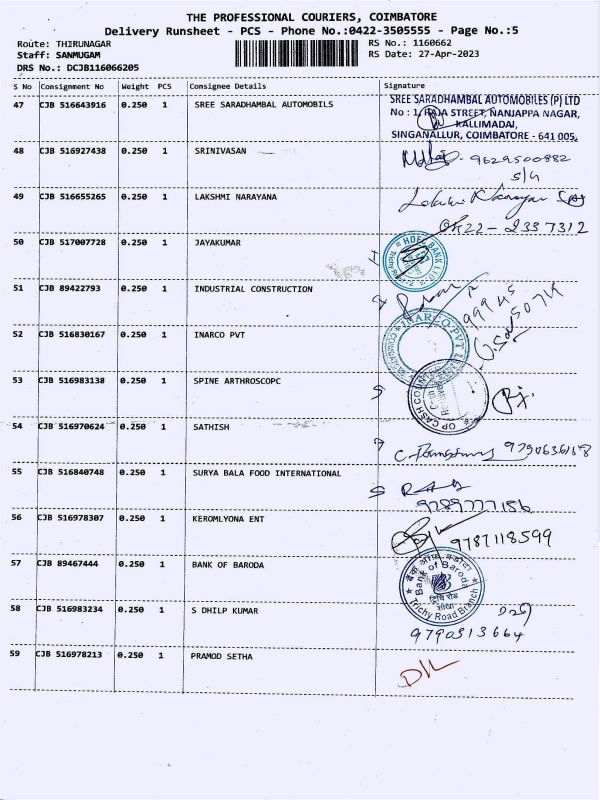 THE PROFESSIONAL COURIERS, COIMBATORE
Delivery Runsheet - PCS - Phone No.:0422-3505555 - Page No.:5
Route: THIRUNAGAR
RS No.: 1160662
Staff: SANMUGAM
RS Date: 27-Apr-2023
DRS No.: DCJB116066205
S No Consignment No Weight PCS Consignee Details Signature
47 CJB 516643916 0.250 1 SREE SARADHAMBAL AUTOMOBILS
SREE SARADHAMBAL AUTOMOBILES (P) LTD
No : 1, RAJA STREET, NANJAPPA NAGAR,
KALLIMADAI,
SINGANALLUR, COIMBATORE - 641 005.
48 CJB 516927438 0.250 1 SRINIVASAN
9629500882
S/G
49 CJB 516655265 0.250 1 LAKSHMI NARAYANA
0422-2337312
50 CJB 517007728 0.250 1 JAYAKUMAR
HDFC BANK LTD
51 CJB 89422793 0.250 1 INDUSTRIAL CONSTRUCTION
52 CJB 516830167 0.250 1 INARCO PVT
INARCO PVT
53 CJB 516983138 0.250 1 SPINE ARTHROSCOPC
OP CASH COUNTER
54 CJB 516970624 1 SATHISH
0.250
9790636158
55 CJB 516840748 0.250 1 SURYA BALA FOOD INTERNATIONAL
9789777156
56 CJB 516978307 0.250 1 KEROMLYONA ENT
9787118599
57 CJB 89467444 0.250 1 BANK OF BARODA
बैंक ऑफ़ बड़ौदा
Bank of Baroda
शाखा
Trichy Road Branch
58 CJB 516983234 0.250 1 S DHILP KUMAR
9790313664
59 CJB 516978213 0.250 1 PRAMOD SETHA